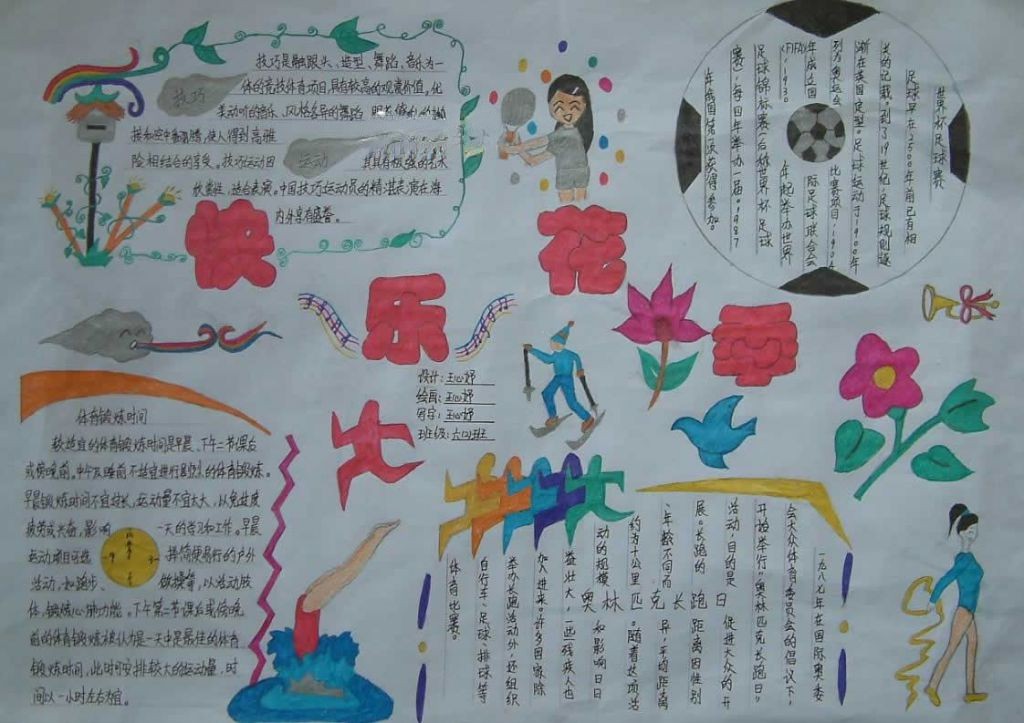 技巧是融跟头、造型、舞蹈、音乐为一
体的竞技体育项目,具有较高的观赏价值,优
技巧
美动听的音乐、风格各异的舞蹈
使人得到高雅
险相结合的享受。技巧运动因
其具有极强的艺术
运动
欣赏性,适合表演。中国技巧运动员的精湛表演在海
内外享有盛誉。
快
乐
花
世界杯足球赛
足球早在2500年前已有相
类的记载。到了19世纪,足球规则逐
渐在英国定型。足球运动于1900年
列为奥运会
比赛项目,1904
年成立国
际足球联合会
(FIFA),1930
年起举办世界
足球锦标赛(后称世界杯足球
赛),每四年举办一届。1987
年我国第一次获得参加。
设计:王心妤
绘画:王心妤
写字:王心妤
班级:六(2)班
体育锻炼时间
较适宜的体育锻炼时间是早晨、下午二节课后
或傍晚前。中午及睡前不适宜进行剧烈的体育锻炼。
早晨锻炼时间不宜过长,运动量不宜太大,以免过度
疲劳或兴奋,影响
一天的学习和工作。早晨
运动项目可选
择简便易行的户外
活动,如跑步、
做操等,以活动肢
体,锻炼心肺功能。下午第二节课后或傍晚
前的体育锻炼被认为是一天中最佳的体育
锻炼时间,此时可安排较大的运动量,时
间以一小时左右为宜。
奥林匹克长跑日
一九八七年在国际奥委
会大众体育委员会的倡议下,
开始举行“奥林匹克长跑日”
活动,目的是
促进大众的开
展。长跑的
距离因性别
、年龄不同而
异,平均距离
约为十公里
。随着这项活
动的规模
和影响日日
益壮大,一些残疾人也
加入进来。许多国家除
举办长跑活动外,还组织
自行车、足球、排球等
体育比赛。